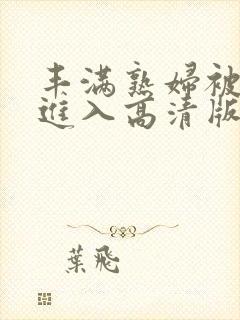 丰满熟妇被
進入高清版
葉飛